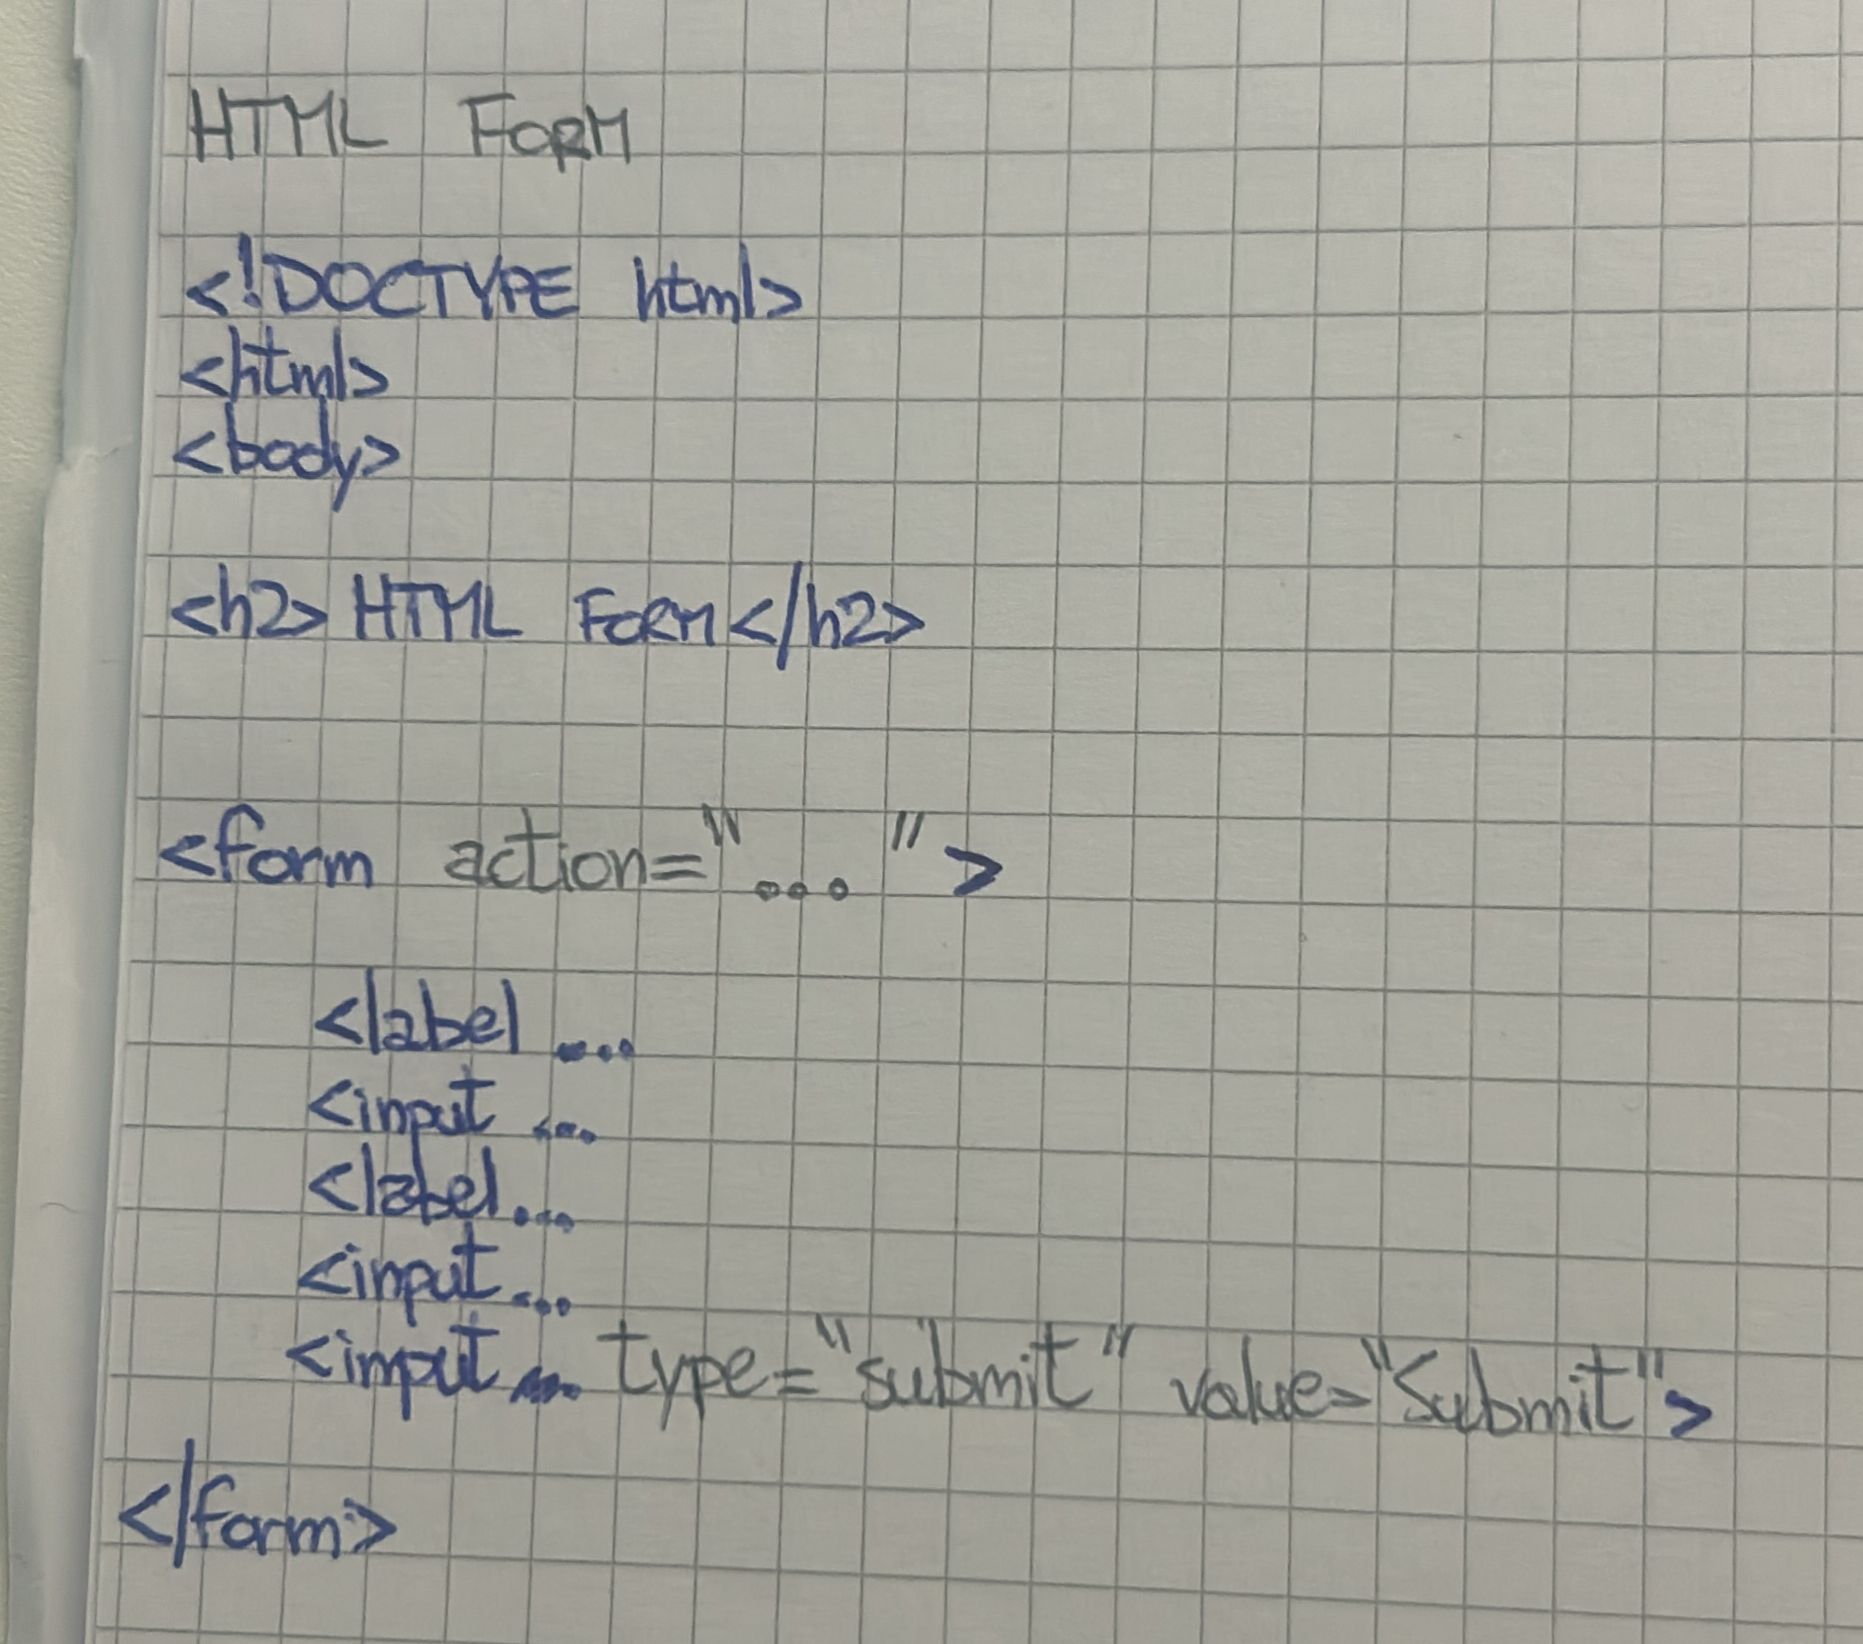 HTML FORM
<!DOCTYPE html>
<html>
<body>
<h2> HTML FORM</h2>
<form action="...">
<label ....
<input ....
<label....
<input....
<input ... type="submit" value="Submit">
</form>